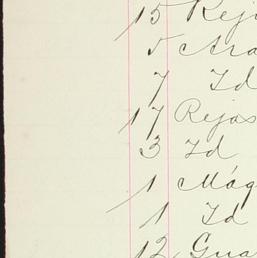 15 Reji
5 Ara
7 Id
17 Rejas
3 Id
1 Máq
1 Id
12 Gua